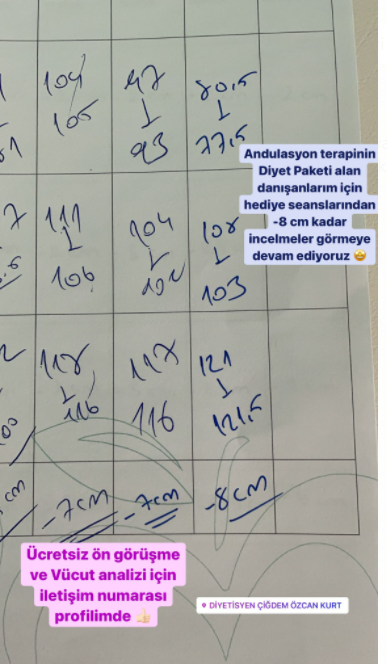 104 97 80.5
105 93 77.5
Andulasyon terapinin
Diyet Paketi alan
danışanlarım için
hediye seanslarından
-8 cm kadar
incelmeler görmeye
devam ediyoruz 🤩
7 111 104 108
106 102 103
118 117 121
116 116 121.5
cm -7cm -7cm -8cm
Ücretsiz ön görüşme
ve Vücut analizi için
iletişim numarası
profilimde 👍🏻
DİYETİSYEN ÇİĞDEM ÖZCAN KURT